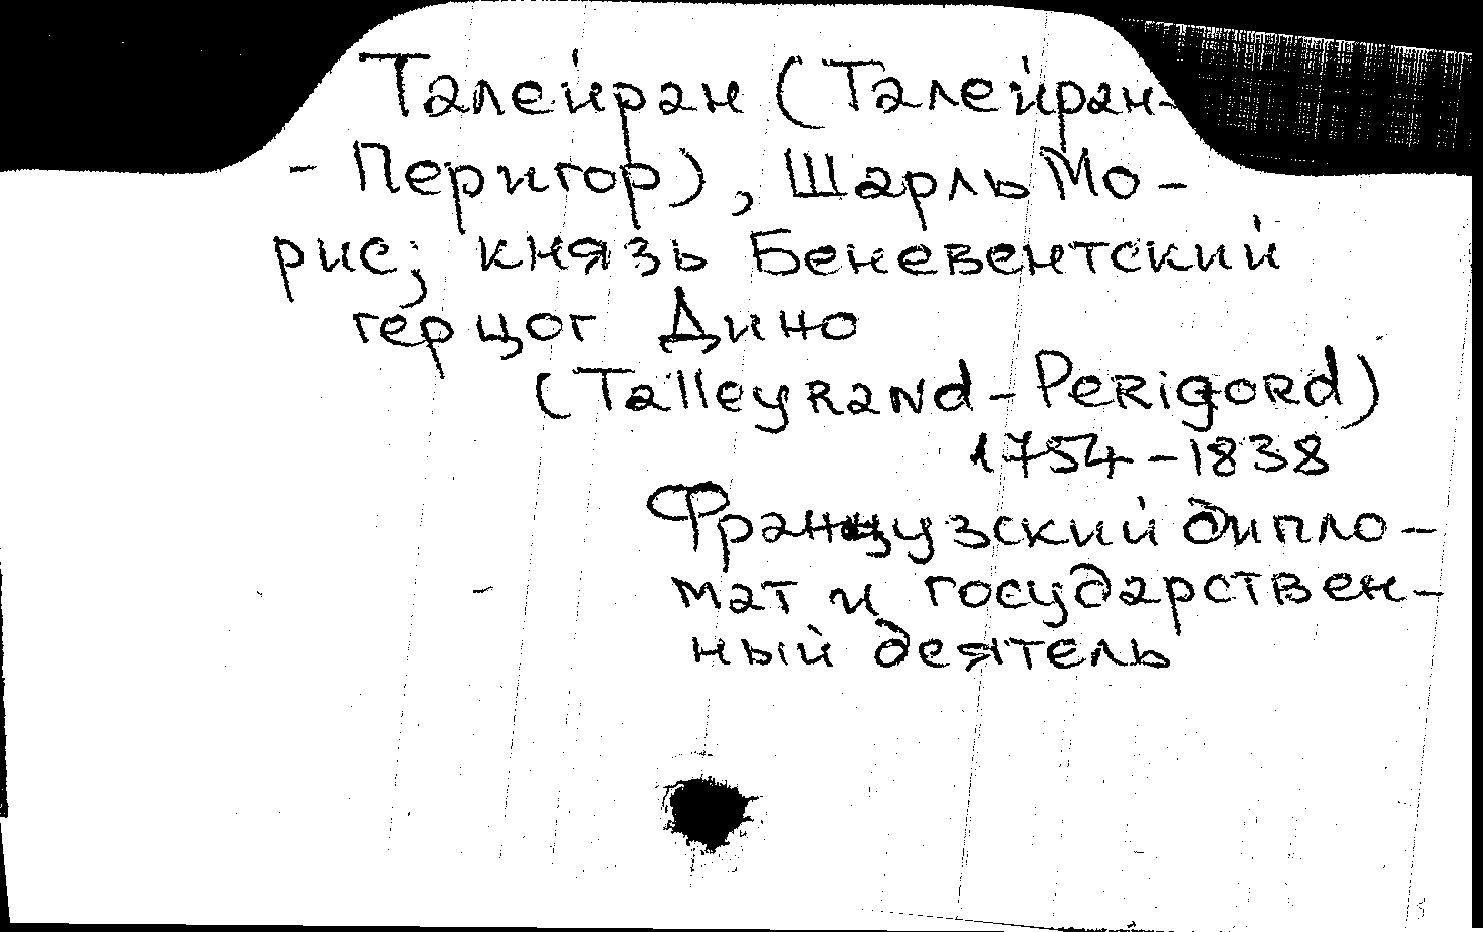 Талейран (Талейран-
- Перигор), Шарль Мо-
рис; князь Беневентский
герцог Дино
(Talleyrand-Perigord)
1754-1838
Французский дипло-
мат и государствен-
ный деятель